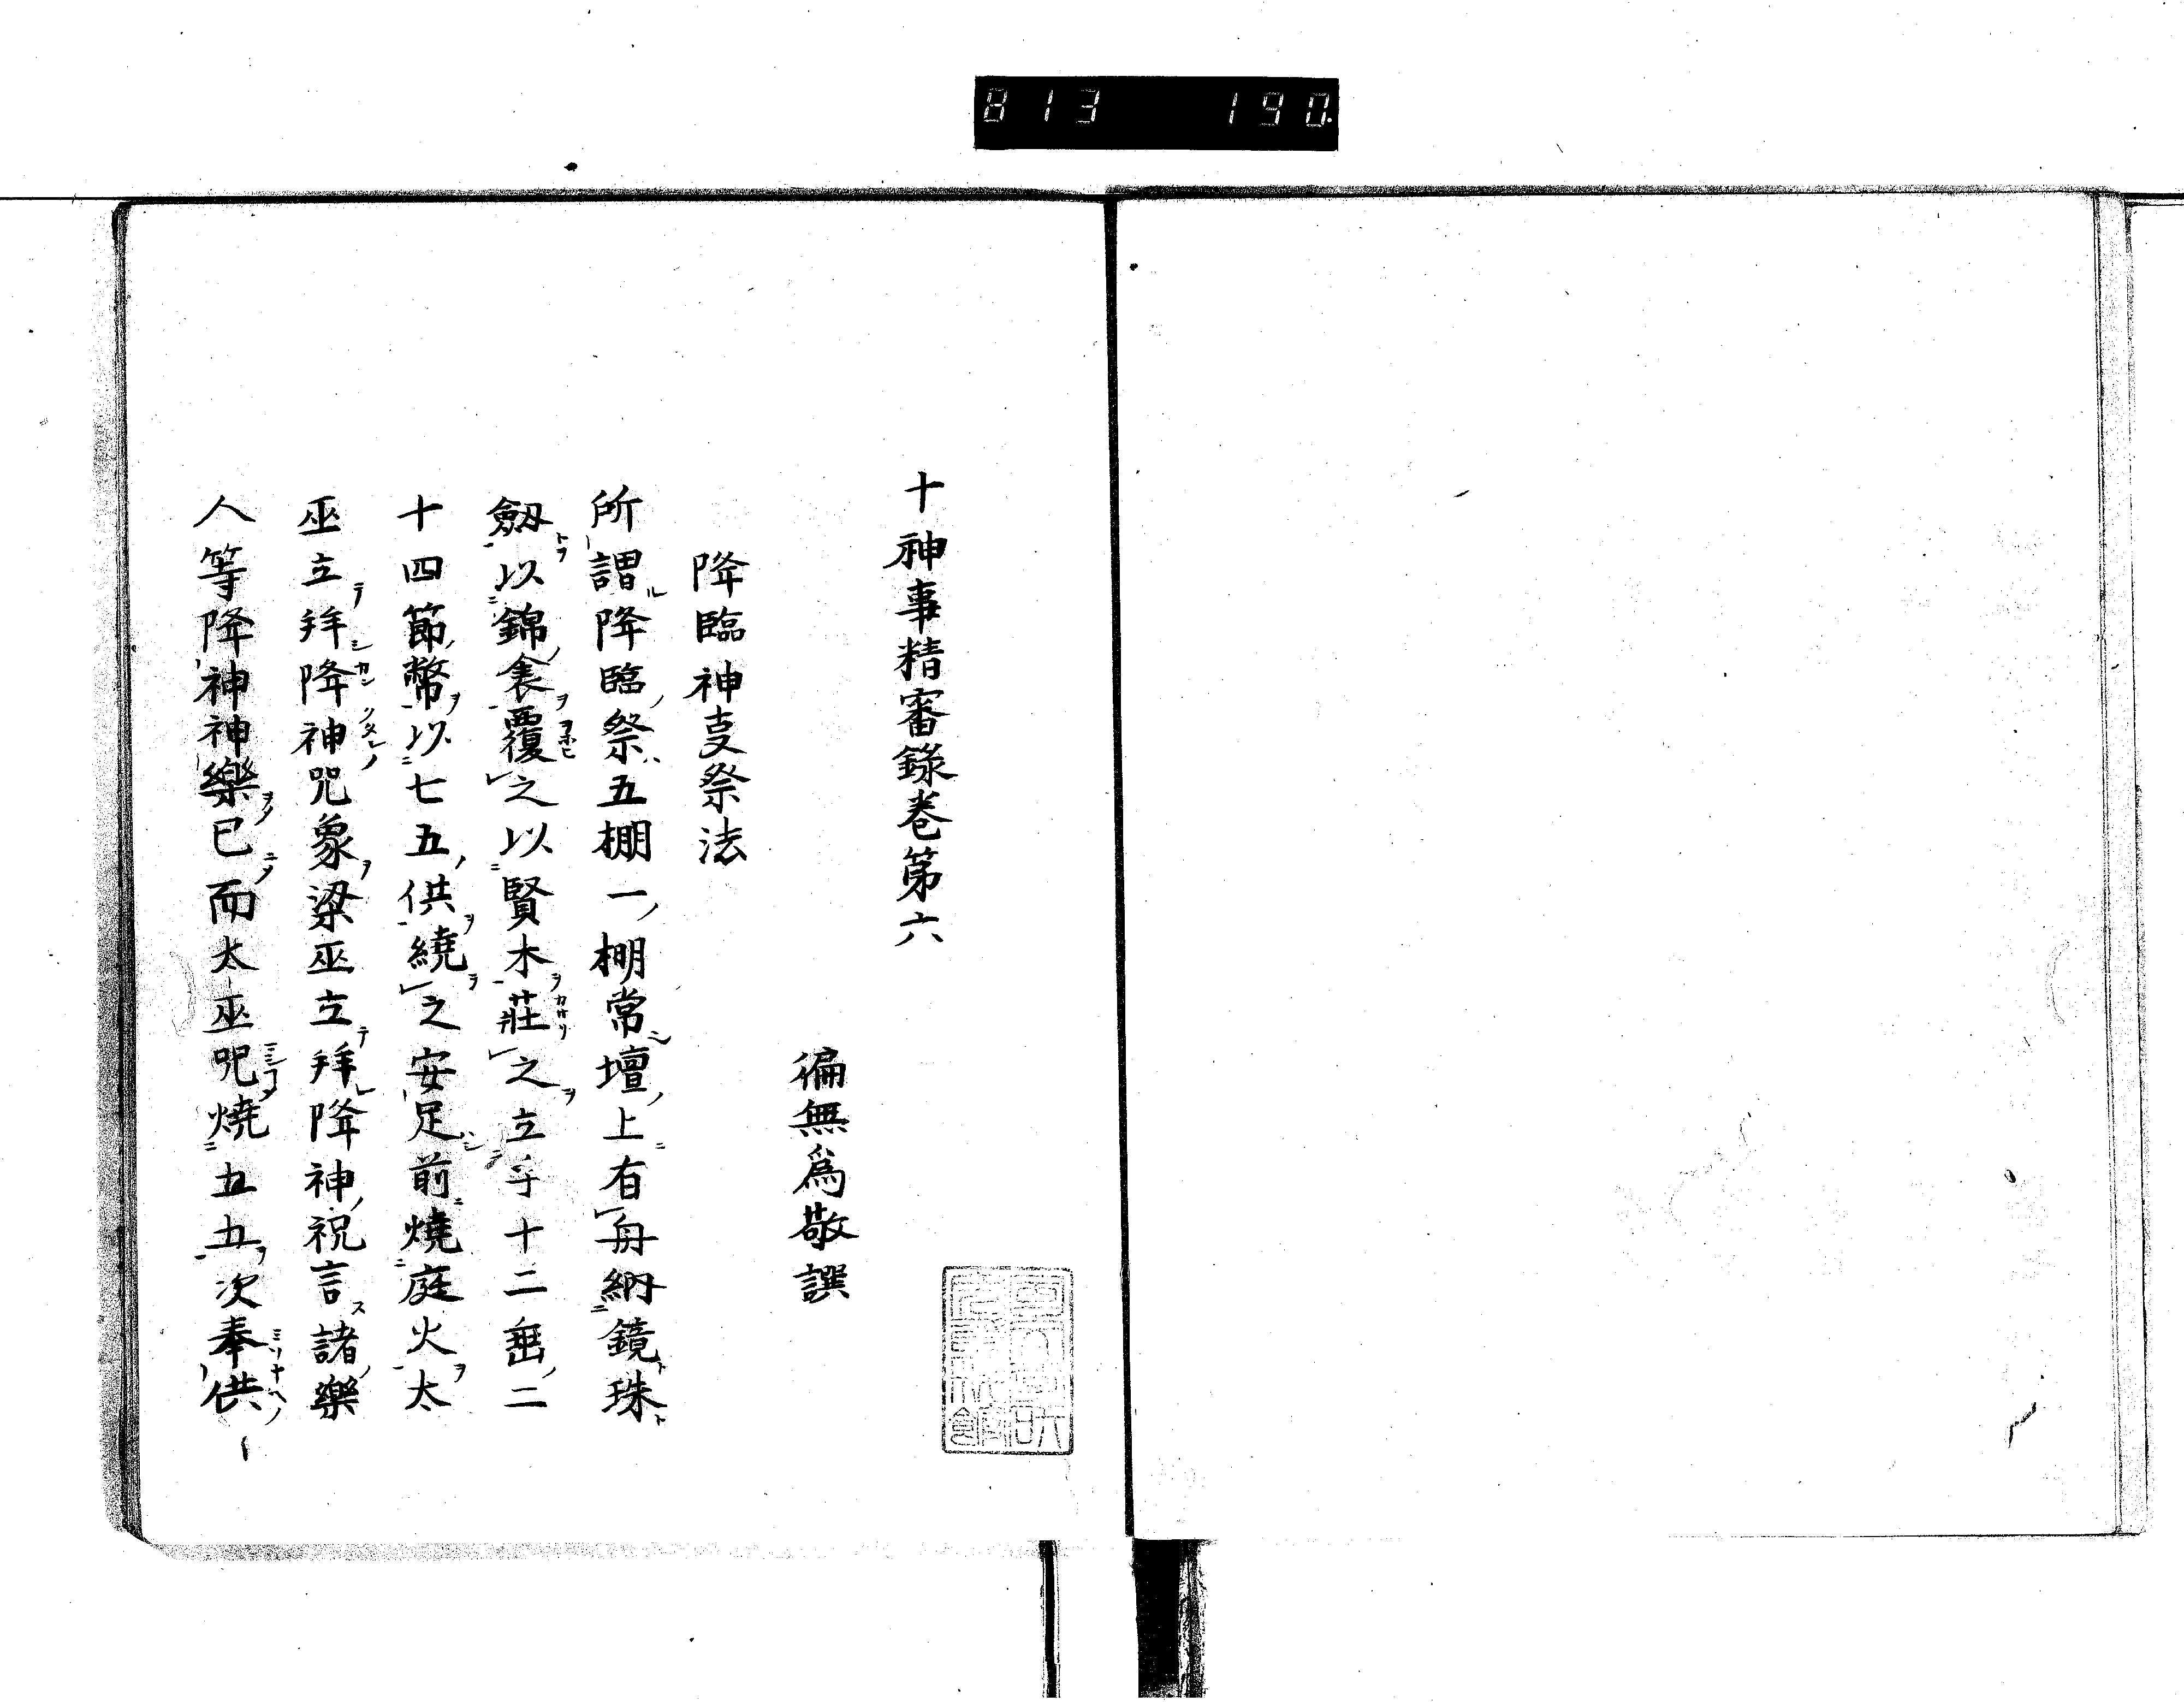 813 190.
十神事精審錄卷第六
徧無爲敬譔
降臨神㕝祭法
所謂降臨祭五棚一棚常壇上有舟納鏡珠
劔以錦衾覆之以賢木莊之立乎十二垂二
十四節幣以七五供繞之安足前燒庭火太
巫立拜降神咒象梁巫立拜降神祝言諸樂
人等降神神樂已而太巫咒燒五五次奉供